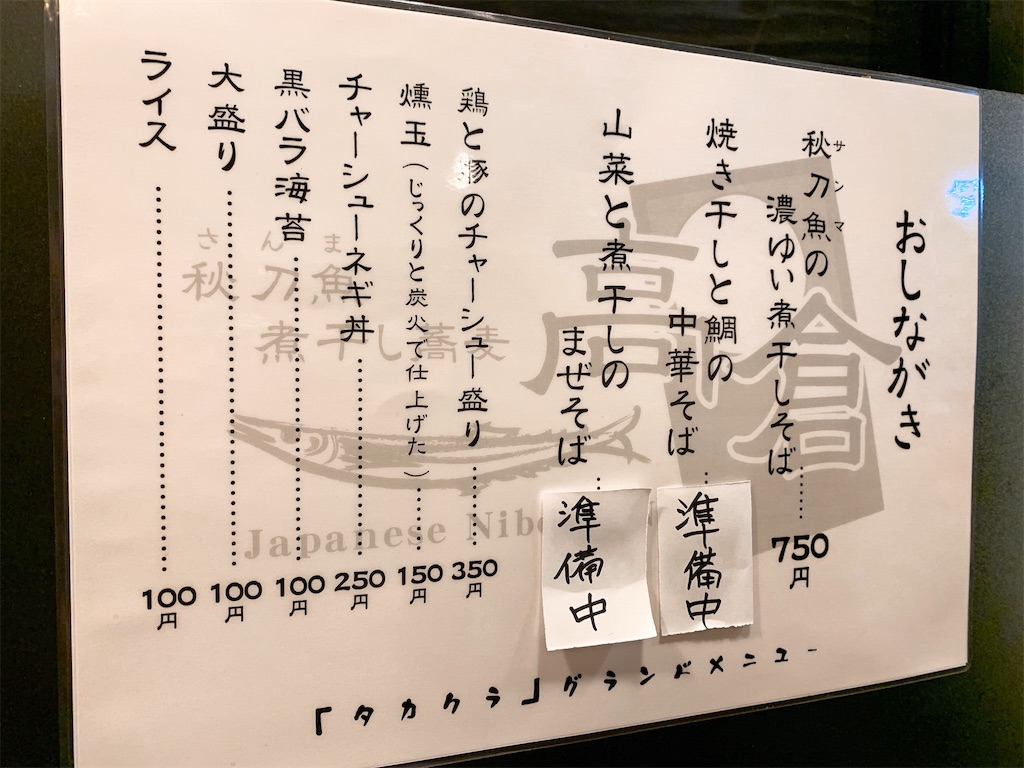 おしながき
秋刀魚の
サンマ
濃ゆい煮干しそば……750円
焼き干しと鯛の
中華そば……
準備中
山菜と煮干しの
まぜそば……
準備中
鶏と豚のチャーシュー盛り……350円
燻玉（じっくりと炭火で仕上げた）……150円
チャーシューネギ丼……250円
黒バラ海苔……100円
大盛り……100円
ライス……100円
「タカクラ」グランドメニュー
高倉
さんま
秋刀魚
煮干し蕎麦
Japanese